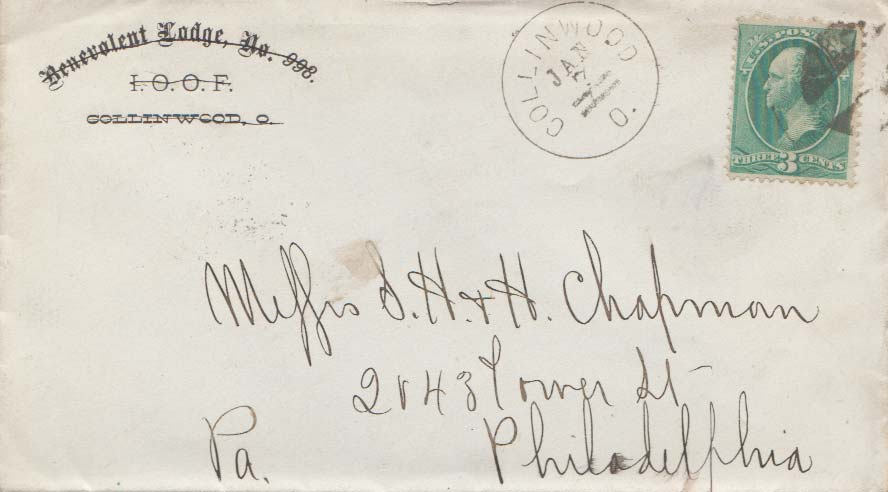 Benevolent Lodge, No. 998.
I. O. O. F.
COLLINWOOD, O.
COLLINWOOD O.
JAN
U.S. POSTAGE
THREE 3 CENTS
Messrs S. H. & H. Chapman
2043 Tower St
Philadelphia
Pa.